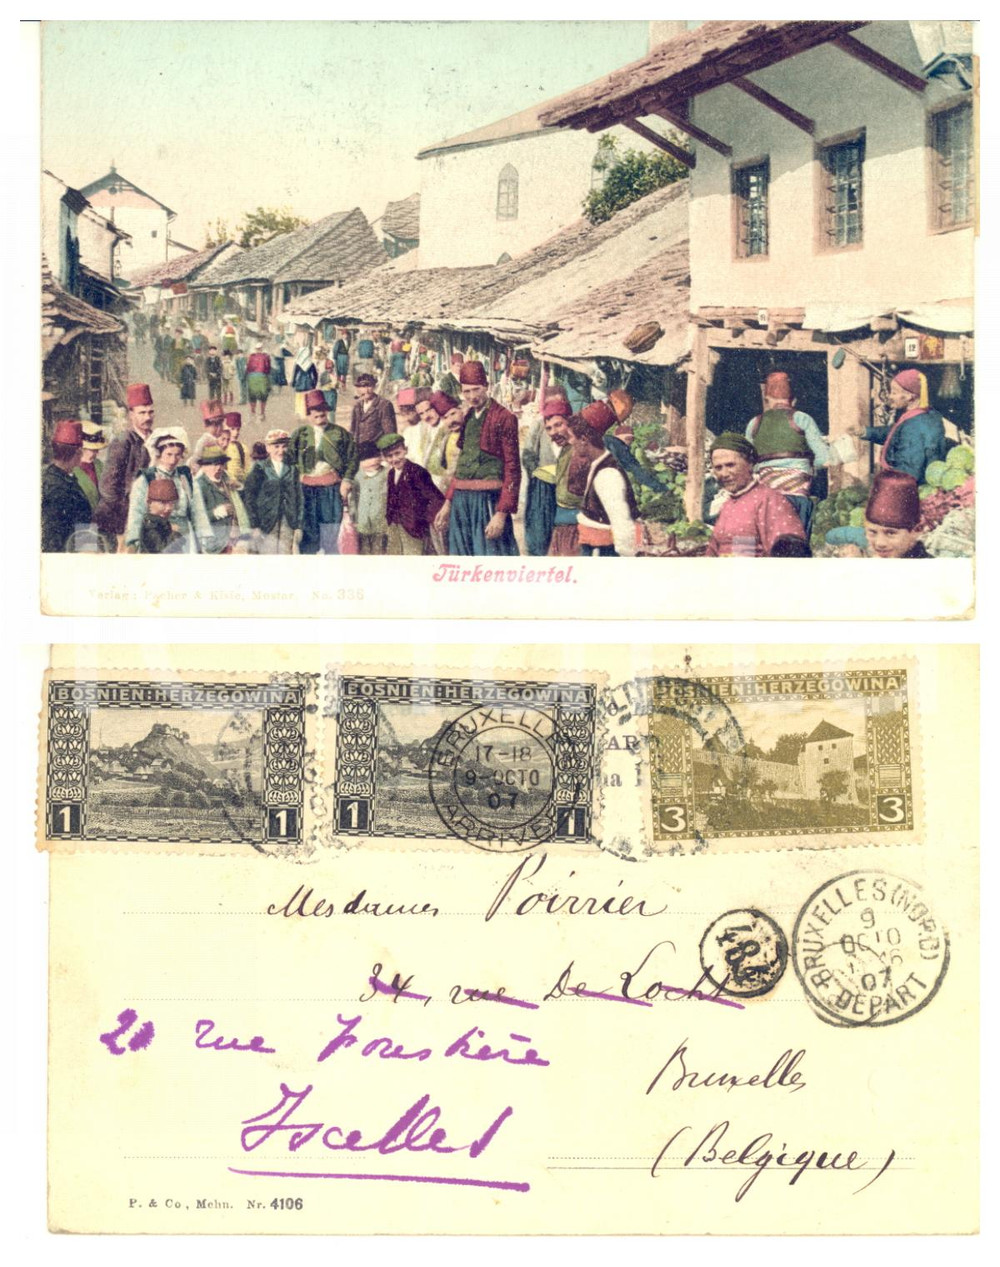 Türkenviertel.
Verlag: Pacher & Kisić, Mostar. No. 336
BOSNIEN:HERZEGOWINA
1 1
BOSNIEN:HERZEGOWINA
1 1
BOSNIEN:HERZEGOWINA
3 3
BRUXELLES
17-18
9-OCTO
07
ARRIVEE
Mesdames Poirrier
34, rue De Locht
20 rue Forestière
Ixelles
Bruxelles
(Belgique)
BRUXELLES (NORD)
9
OCTO
07
DEPART
P. & Co, Mchn. Nr. 4106